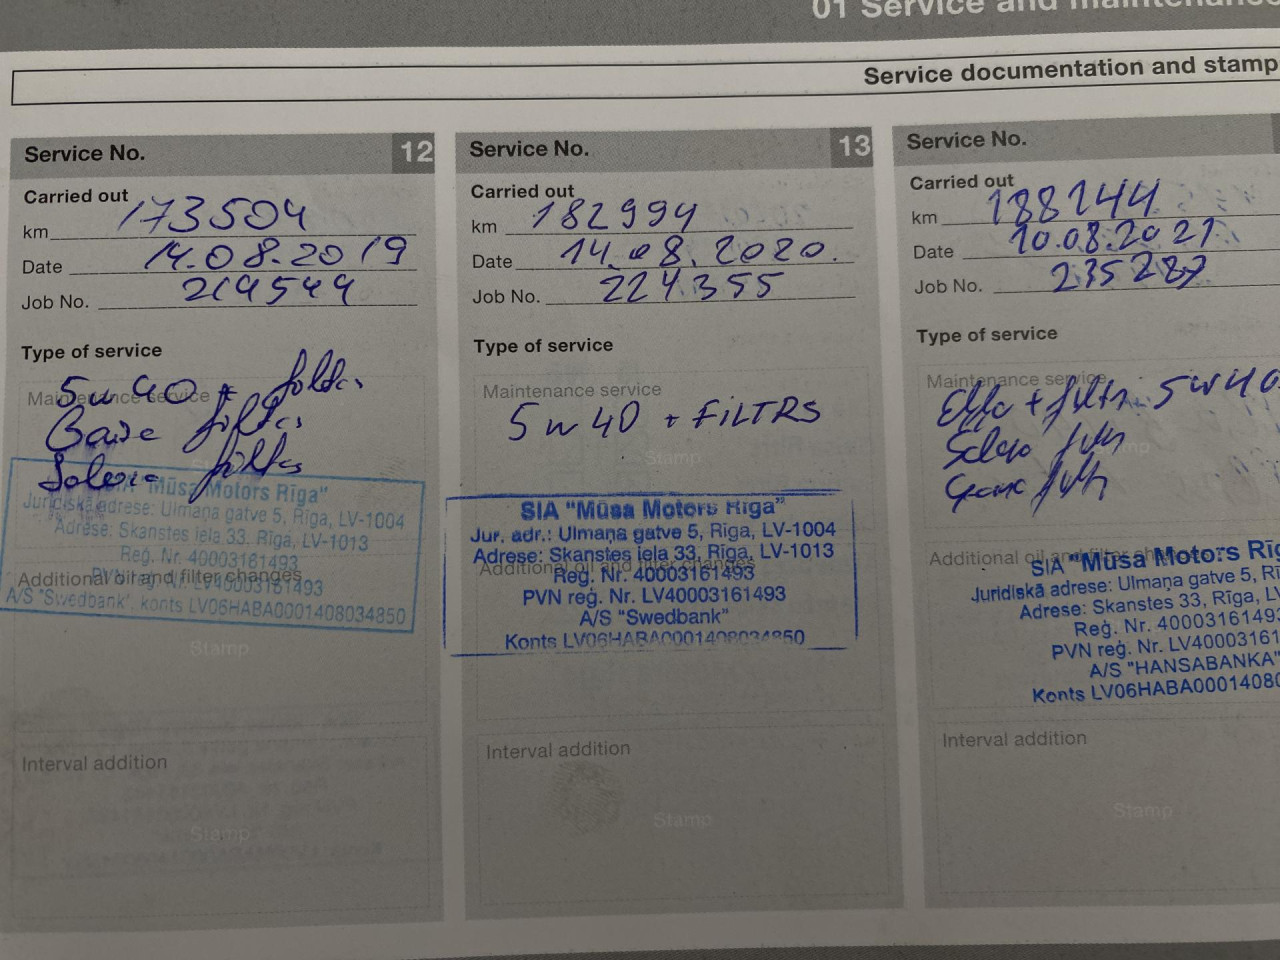 01 Service and maintenance
Service documentation and stamp
Service No. 12
Carried out
km 173504
Date 14.08.2019
Job No. 219549
Type of service
Maintenance service
5w40 + filtrs
filtrs
Salona filtrs
Stamp
SIA "Mūsa Motors Rīga"
Juridiskā adrese: Ulmaņa gatve 5, Rīga, LV-1004
Adrese: Skanstes iela 33, Rīga, LV-1013
Reģ. Nr. 40003161493
PVN reģ. Nr. LV40003161493
A/S "Swedbank", konts LV06HABA0001408034850
Additional oil and filter changes
Stamp
Interval addition
Stamp
Service No. 13
Carried out
km 182994
Date 14.08.2020.
Job No. 224355
Type of service
Maintenance service
5w40 + FiLTRS
Stamp
SIA "Mūsa Motors Rīga"
Jur. adr.: Ulmaņa gatve 5, Rīga, LV-1004
Adrese: Skanstes iela 33, Rīga, LV-1013
Additional oil and filter changes
Reģ. Nr. 40003161493
PVN reģ. Nr. LV40003161493
A/S "Swedbank"
Konts LV06HABA0001408034850
Interval addition
Stamp
Service No.
Carried out
km 188144
Date 10.08.2021
Job No. 235287
Type of service
Maintenance service
+ filtrs 5w40
Stamp
Additional oil and filter changes
SIA "Mūsa Motors Rīg
Juridiskā adrese: Ulmaņa gatve 5, Rī
Adrese: Skanstes 33, Rīga, LV
Reģ. Nr. 40003161493
PVN reģ. Nr. LV40003161
A/S "HANSABANKA"
Konts LV06HABA00014080
Interval addition
Stamp